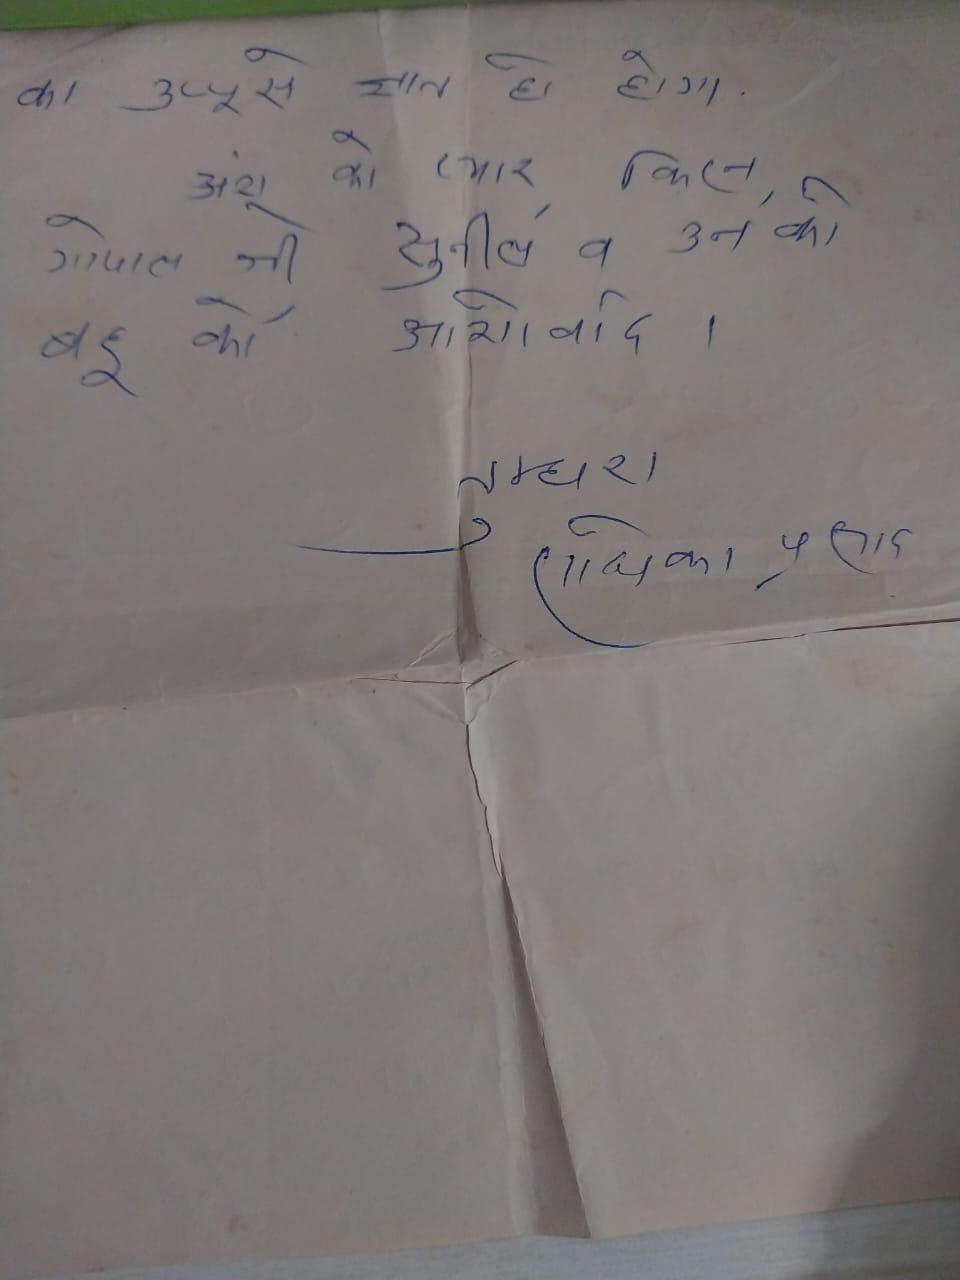 का उप्पूसे ज्ञात हो होगा.
अंशू को प्यार, किरन,
गोपाल जी सुनील व उनकी
बहू को आशीर्वाद ।
तुम्हारा
प्रसाद